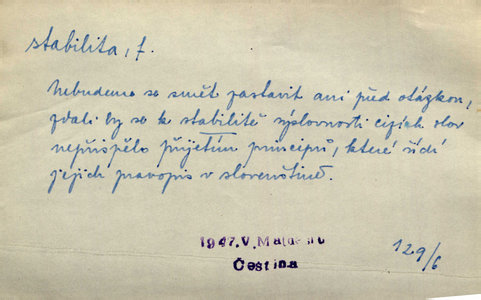 stabilita, f.
Nebudeme se smět zastavit ani před otázkou,
zdali by se k stabilitě výslovnosti cizích slov
nepřispělo přijetím principů, které řídí
jejich pravopis v slovenštině.
1947. V.
Čeština
129/6